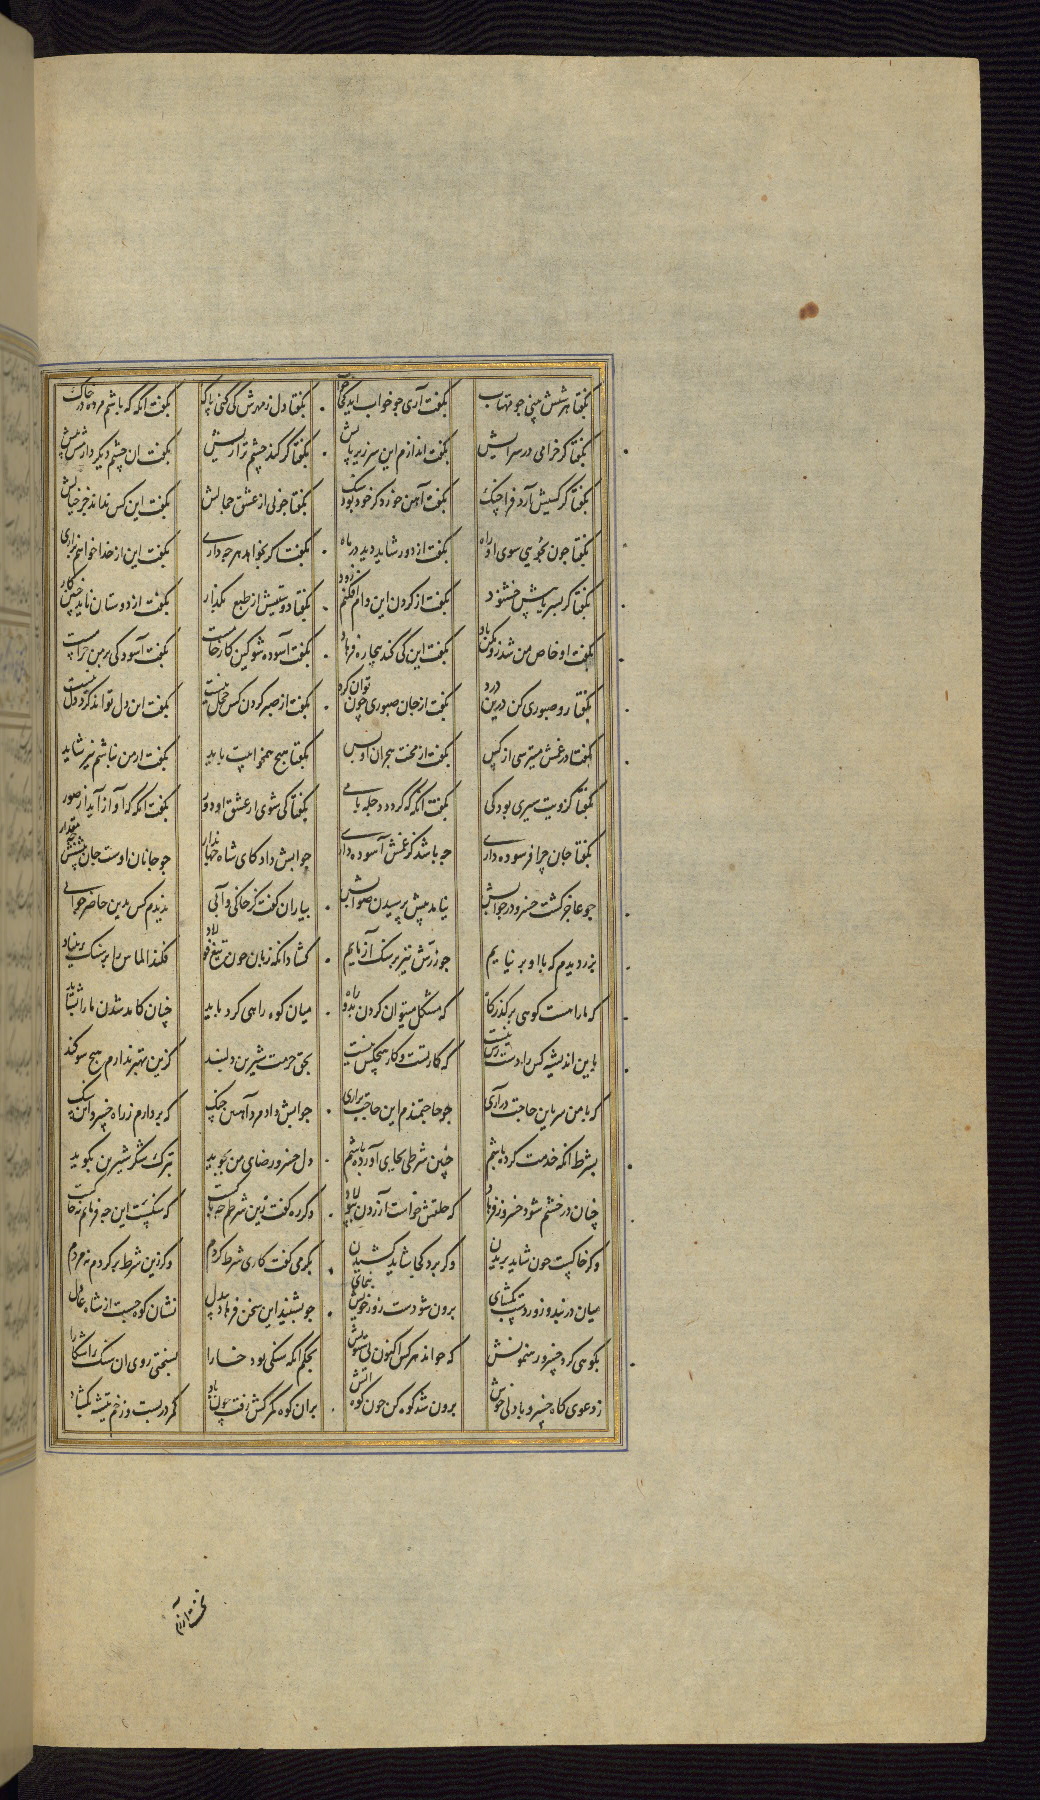 بگفتا هر شبش بینی چو مهتاب بگفت آری چو خواب آید کجا خواب بگفتا دل ز مهرش کی کنی پاک بگفت انگه که باشم مرده در خاک
بگفتا گر خرامی در سرایش بگفت اندازم این سر زیر پایش بگفتا گر کند چشم ترا ریش بگفت ان چشم دیگر دارمش پیش
بگفتا گر کسیش آرد فرا چنگ بگفت آهن خورد گر خود بود سنگ بگفتا چونی از عشق جمالش بگفت این کس نداند جز خیالش
بگفتا چون نجویی سوی او راه بگفت از دور شاید دید در ماه بگفت گر بخواهد هر چه داری بگفت این از خدا خواهم بزاری
بگفتا گر بسر یابیش خشنود بگفت از گردن این وام افکنم زود بگفتا دوستیش از طبع بگذار بگفت از دوستان ناید چنین کار
بگفت او خاص من شد زو مکن یاد بگفت این کی کند بیچاره فرهاد بگفت آسوده شو کین کار خامست بگفت آسودگی بر من حرامست
بگفتا رو صبوری کن درین درد بگفت از جان صبوری چون توان کرد بگفت از صبر کردن کس خجل نیست بگفت این دل تواند کرد دل نیست
بگفتا در غمش میترسی از کس بگفت از محنت هجران او بس بگفتا هیچ همخوابیت باید بگفت ار من نباشم نیز شاید
بگفتا کز ویت سیری بود کی بگفت انگه که گردد دجله بگفتا کی شوی از عشق او دور بگفت انگه که آواز آید از صور
بگفتا جان چرا فرسوده داری چه باشد کز غمش آسوده داری جوابش داد کای شاه جهاندار چو جانان اوست جان پیشش چه مقدار
چو عاجز گشت خسرو در جوابش نیامد پیش پرسیدن صوابش بیاران گفت کز خاکی و آبی ندیدم کس بدین حاضر جوابی
بزر دیدم که با او بر نیایم چو زرش نیز بر سنگ آزمایم گشاد انگه زبان چون تیغ فولاد فکند الماس را بر سنگ بنیاد
که ما را هست کوهی بر گذرگاه که مشکل میتوان کردن بدو راه میان کوه راهی کرد باید چنان کامد شدن ما را بشاید
بدین اندیشه کس را دست رس نیست که کار تست و کار هیچکس نیست بحق حرمت شیرین دلبند کزین بهتر ندارم هیچ سوگند
که با من سر باین حاجت درآری چو حاجتمندم این حاجت براری جوابش داد مرد آهنین چنگ که بردارم ز راه خسرو این سنگ
بشرط انکه خدمت کرده باشم چنین شرطی بجای آورده باشم دل خسرو رضای من بجوید بترک شکر شیرین بگوید
چنان در خشم شد خسرو ز فرهاد که حلقش خواست آزردن بپولاد دگر ره گفت زین شرطم چه باکست که سنگست این چه فرمایم نه خاکست
وگر خاکیست چون شاید بریدن وگر برد کجا شاید کشیدن بگرمی گفت کاری شرط کردم وگر زین شرط برگردم نه مردم
میان دربند و زور دست بگشای برون شو دست زور خویش بنمای چو بشنید این سخن فرهاد بیدل نشان کوه جست از شاه عادل
بکوهی کرد خسرو رهنمونش که خواند هر کس اکنون بی ستونش بحکم انکه سنگی بود خارا بسختی روی ان سنگ آشکارا
ز دعوی گاه خسرو با دلی خوش برون شد کوه کن چون کوه آتش بران کوه کمرکش رفت چون باد کمر دربست و زخم تیشه بگشاد
نخست آزرم